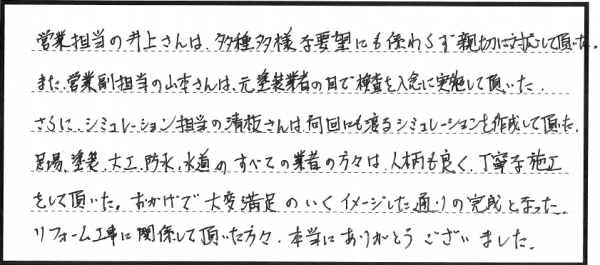 営業担当の井上さんは、多種多様な要望にも係わらず親切に対応して頂いた。
また、営業副担当の山本さんは、元塗装業者の目で検査を入念に実施して頂いた。
さらに、シミュレーション担当の清板さんは、何回にも渡るシミュレーションを作成して頂いた。
足場、塗装、大工、防水、水道のすべての業者の方々は、人柄も良く、丁寧な施工
をして頂いた。おかげで大変満足のいくイメージした通りの完成となった。
リフォーム工事に関係して頂いた方々、本当にありがとうございました。